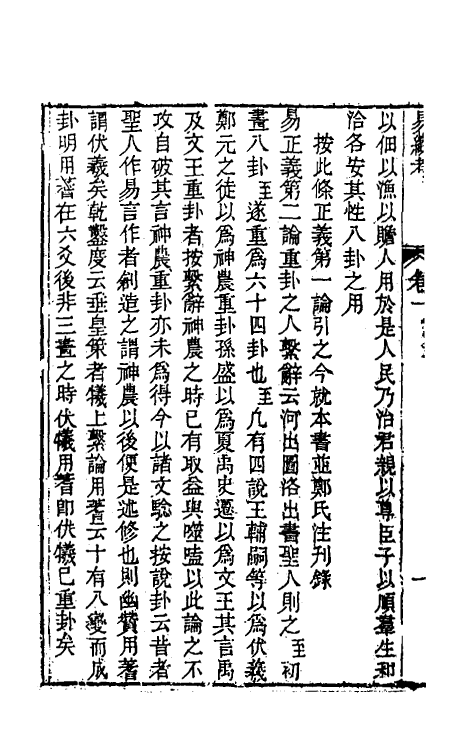 易緯考
卷一
一
以佃以漁以贍人用於是人民乃治君親以尊臣子以順羣生和
洽各安其性八卦之用
按此條正義第一論引之今就本書並鄭氏注刊錄
易正義第二論重卦之人繫辭云河出圖洛出書聖人則之至初
畫八卦至遂重爲六十四卦也至凡有四說王輔嗣等以爲伏羲
鄭元之徒以爲神農重卦孫盛以爲夏禹史遷以爲文王其言禹
及文王重卦者按繫辭神農之時已有取益與噬嗑以此論之不
攻自破其言神農重卦亦未爲得今以諸文驗之按說卦云昔者
聖人作易言作者創造之謂神農以後便是述修也則幽贊用蓍
謂伏羲矣乾鑿度云垂皇策者犧上繫論用蓍云十有八變而成
卦明用蓍在六爻後非三畫之時伏犧用蓍卽伏犧已重卦矣